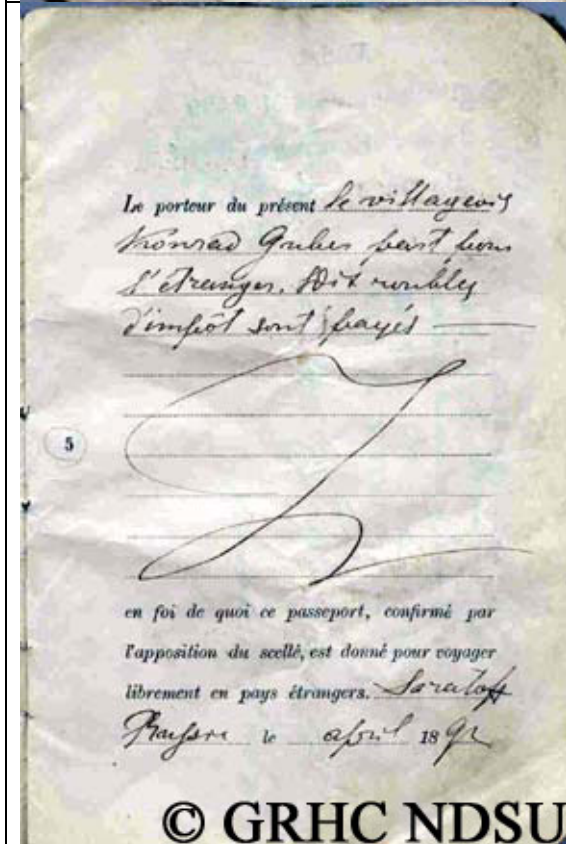 Le porteur du présent le villageois
Konrad Gruber part pour
l'étranger. Dix roubles
d'impôt sont payés
5
en foi de quoi ce passeport, confirmé par
l'apposition du scellé, est donné pour voyager
librement en pays étrangers. Saratoff
le april 1892
© GRHC NDSU